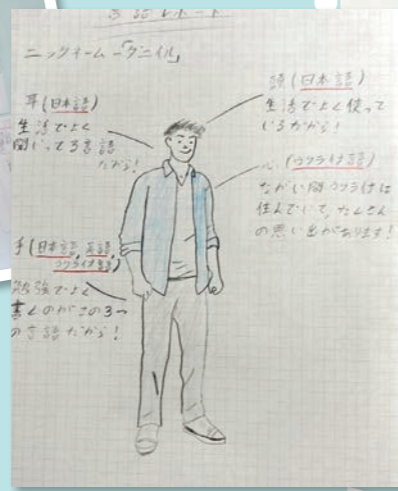 言語レポート
ニックネーム-「ダニイル」
耳(日本語)
生活でよく
聞いてる言語
だから!
頭(日本語)
生活でよく使って
いるだから!
心(ウクライナ語)
ながい間ウクライナに
住んでいて、たくさん
の思い出があります!
手(日本語、英語、
ウクライナ語)
勉強でよく
書くのがこの3つ
の言語だから!